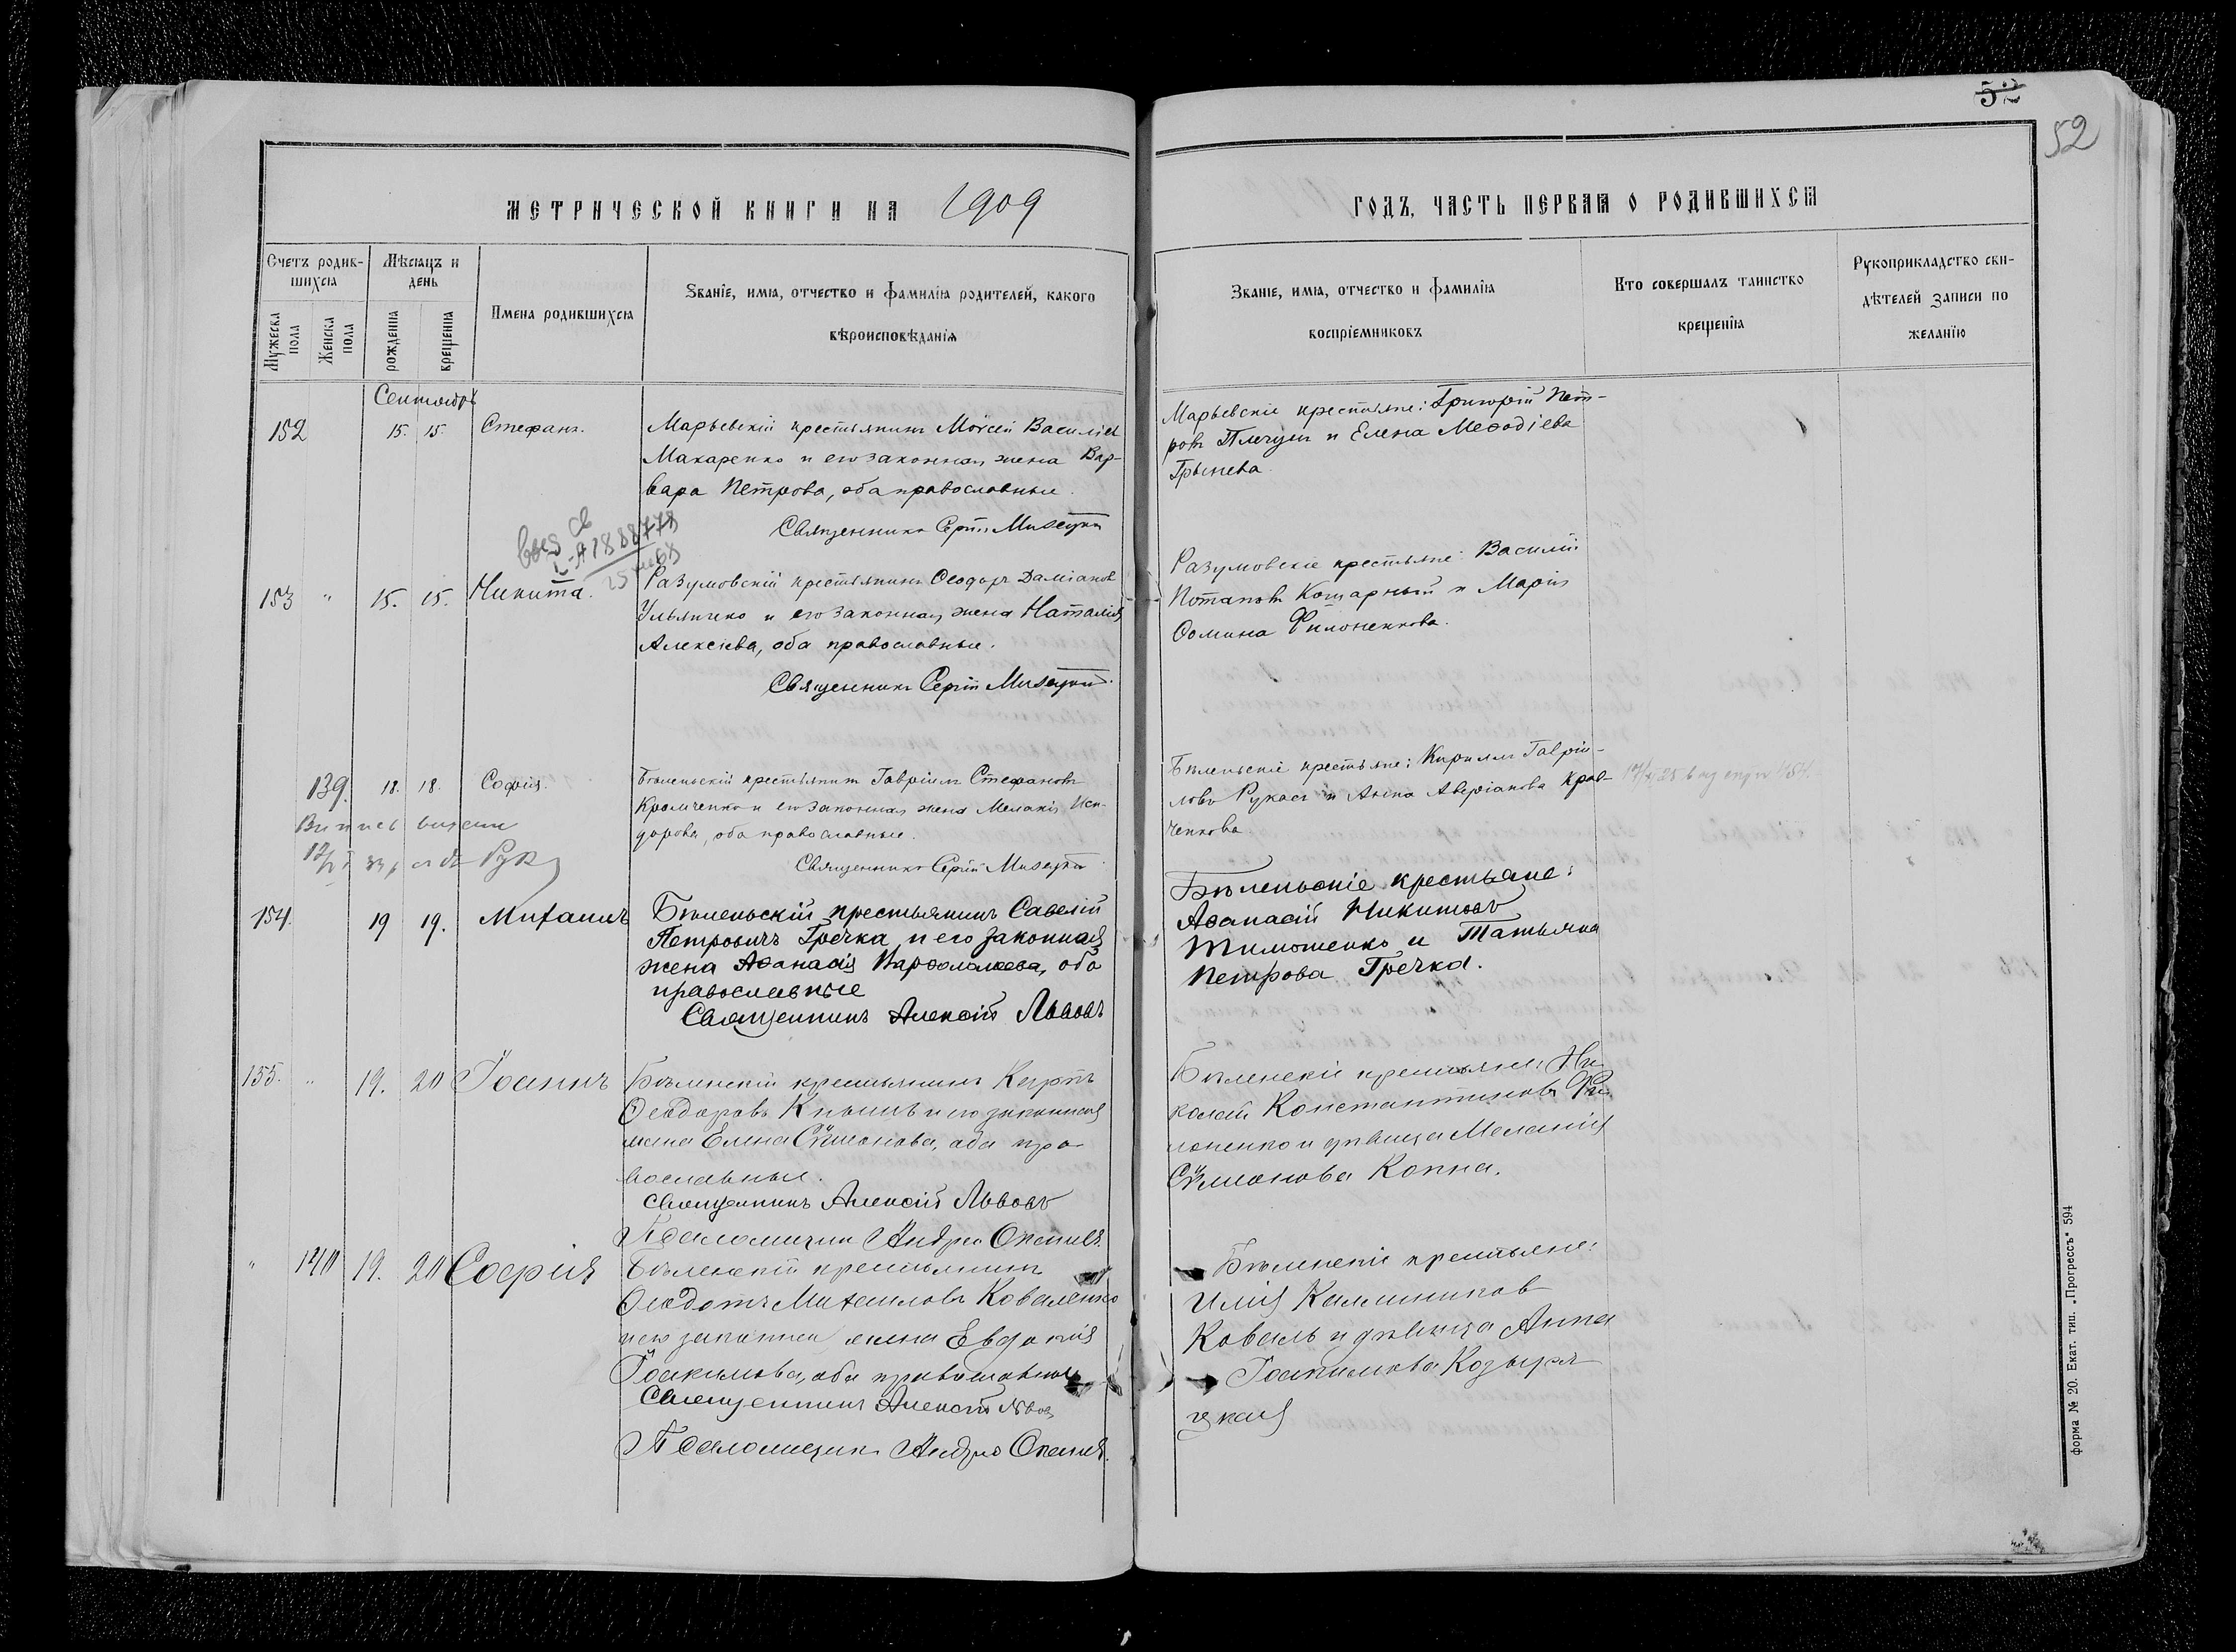 52
52
МЕТРИЧЕСКОЙ КНИГИ НА 1909
ГОДЪ, ЧАСТЬ ПЕРВАЯ О РОДИВШИХСЯ
Счетъ родив-
шихся
Мѣсяцъ и
день
Мужеска
пола
Женска
пола
рожденія
крещенія
Имена родившихся
Званіе, имя, отчество и фамилія родителей, какого
вѣроисповѣданія
Званіе, имя, отчество и фамилія
воспріемниковъ
Кто совершалъ таинство
крещенія
Рукоприкладство сви-
дѣтелей записи по
желанію
Сентябрь
152 15. 15. Стефанъ.
Марьевскій крестьянинъ Моѵсей Василіев
Макаренко и его законная жена Вар-
вара Петрова, оба православные.
Священникъ Сергій
Марьевскіе крестьяне: Григорій Пет-
ровъ и Елена Меѳодіева
Грынева.
25 68
153 " 15. 15. Никита.
Разумовскій крестьянинъ Ѳеодоръ Даміановъ
Ульянченко и его законная жена Наталія
Алексѣева, оба православные.
Священникъ Сергій
Разумовскіе крестьяне: Василій
Потаповъ Кошарный и Марія
Ѳомина Филоненкова.
139. 18. 18. Софія.
Бѣленьскій крестьянинъ Гавріилъ Стефановъ
Кромченко и его законная жена Меланія Иси-
дорова, оба православные.
Священникъ Сергій
Бѣленьскіе крестьяне: Кириллъ Гаврiи-
ловъ Рукасъ и Анна Аверіанова Крав-
ченкова.
154. 19 19. Михаилъ
Бѣленьскій крестьянинъ Савелій
Петровичъ Гречка и его законная
жена Аѳанасія Варѳоломеева, оба
православные
Священникъ Алексій Львовъ
Бѣленьскіе крестьяне:
Аѳанасій Никитовъ
Тимошенко и Татьяна
Петрова Гречка.
155. " 19. 20 Іоаннъ
Бѣленскій крестьянинъ Карпъ
Ѳеодоровъ Кнышъ и его законная
жена Елена Сѵмонова, оба пра-
вославные.
Священникъ Алексій Львовъ
Псаломщикъ Андрей
Бѣленскіе крестьяне: Ни-
колай Константиновъ Фи-
лоненко и дѣвица Меланія
Сѵмонова Копна.
" 140 19. 20 Софія
Бѣленскій крестьянинъ
Ѳеодотъ Михаиловъ Коваленко
и его законная жена Евдокія
Іоакимова, оба православные
Священникъ Алексій Львовъ
Псаломщикъ Андрей
Бѣленскіе крестьяне:
Илія Каллиниковъ
Коваль и дѣвица Анна
Іоакимова Козыря-
цкая
форма № 20. Екат. тип. „Прогрессъ" 594